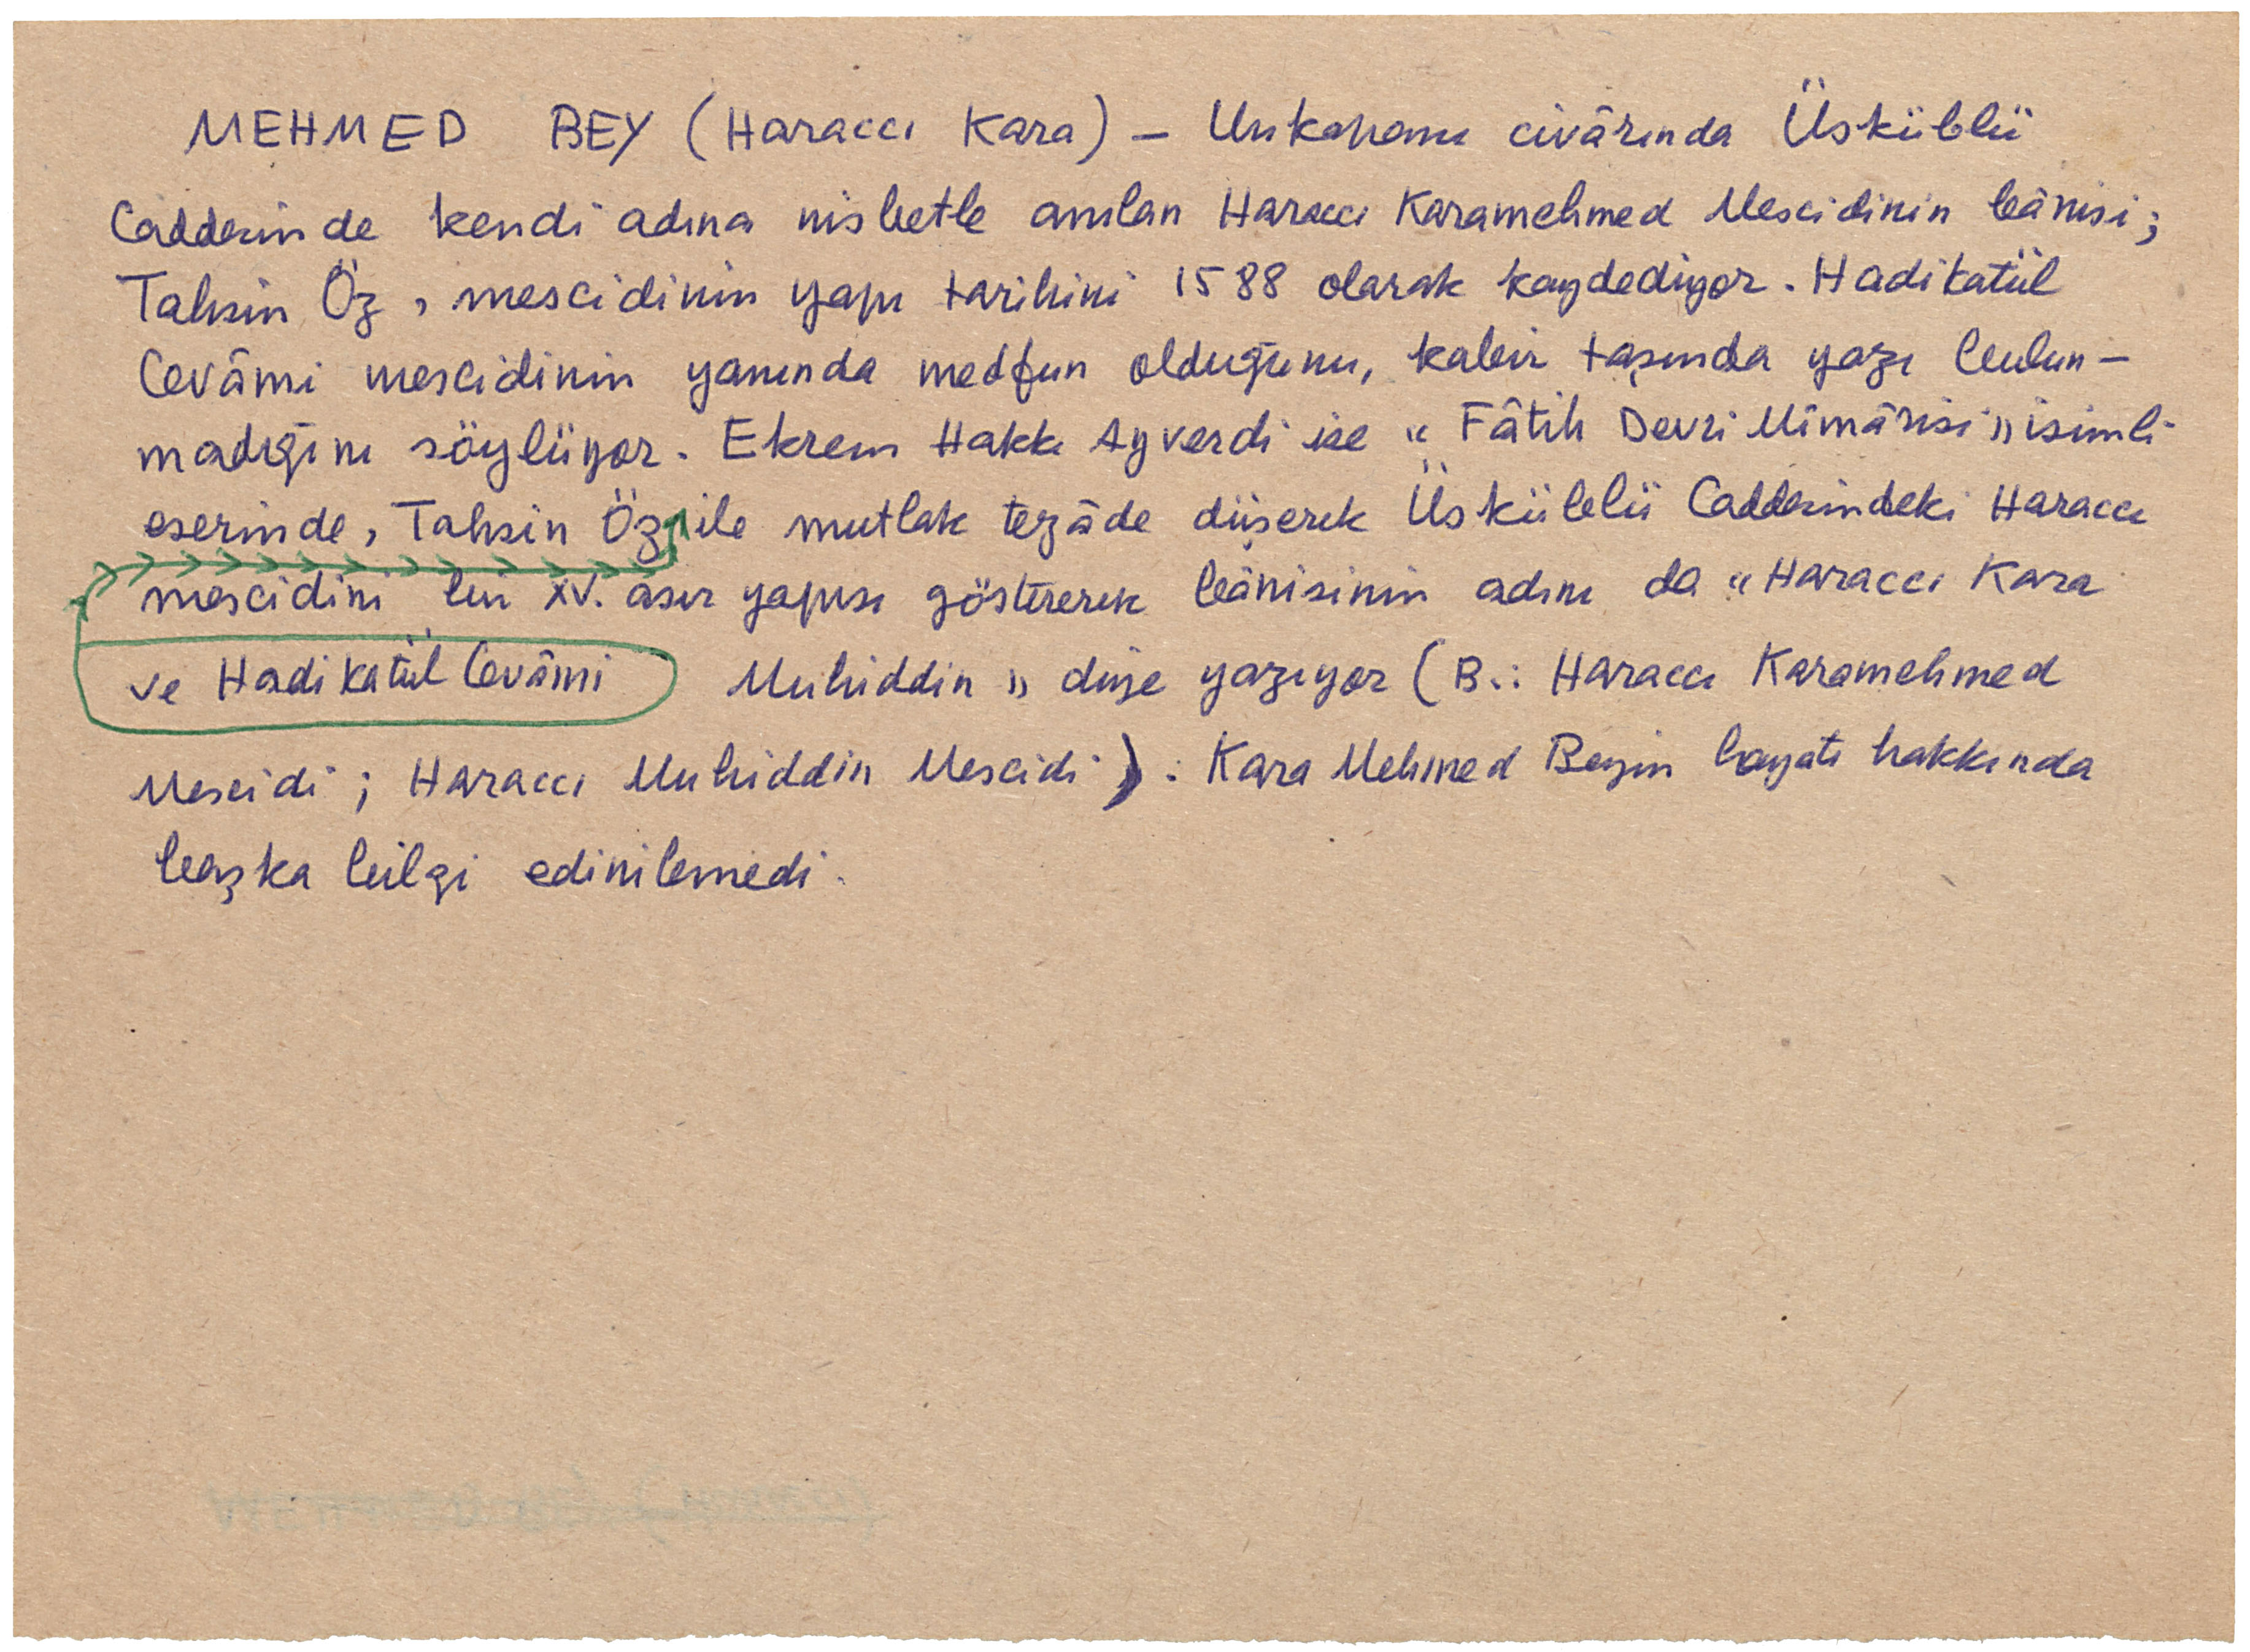 MEHMED BEY (Haraccı Kara) — Unkapanı civârında Üsküblü
Caddesinde kendi adına nisbetle anılan Haraccı Karamehmed Mescidinin bânisi;
Tahsin Öz, mescidinin yapı tarihini 1588 olarak kaydediyor. Hadikatül
Cevâmi mescidinin yanında medfun olduğunu, kabir taşında yazı bulun-
madığını söylüyor. Ekrem Hakkı Ayverdi ise "Fâtih Devri Mîmârisi" isimli
eserinde, Tahsin Öz ile mutlak tezâde düşerek Üsküblü Caddesindeki Haraccı
mescidini bir XV. asır yapısı göstererek bânisinin adını da "Haraccı Kara
ve Hadikatül Cevâmi Muhiddin" diye yazıyor (B.: Haraccı Karamehmed
Mescidi; Haraccı Muhiddin Mescidi). Kara Mehmed Beyin hayatı hakkında
başka bilgi edinilemedi.